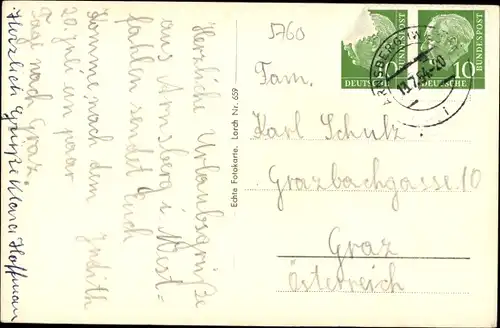 Herzliche Urlaubsgrüße
aus Arnsberg i. West-
fahlen sendet Euch
Judith
Komme nach dem
20. Juli ein paar
Tage nach Graz.
Herzlich Grüße Klara Hoffman
Echte Fotokarte. Lorch Nr. 659
5760
Fam.
Karl Schulz.
Grazbachgasse 10
Graz
Österreich
DEUTSCHE BUNDESPOST
10
DEUTSCHE BUNDESPOST
10
ARNSBERG (W
11.7.54-20
i